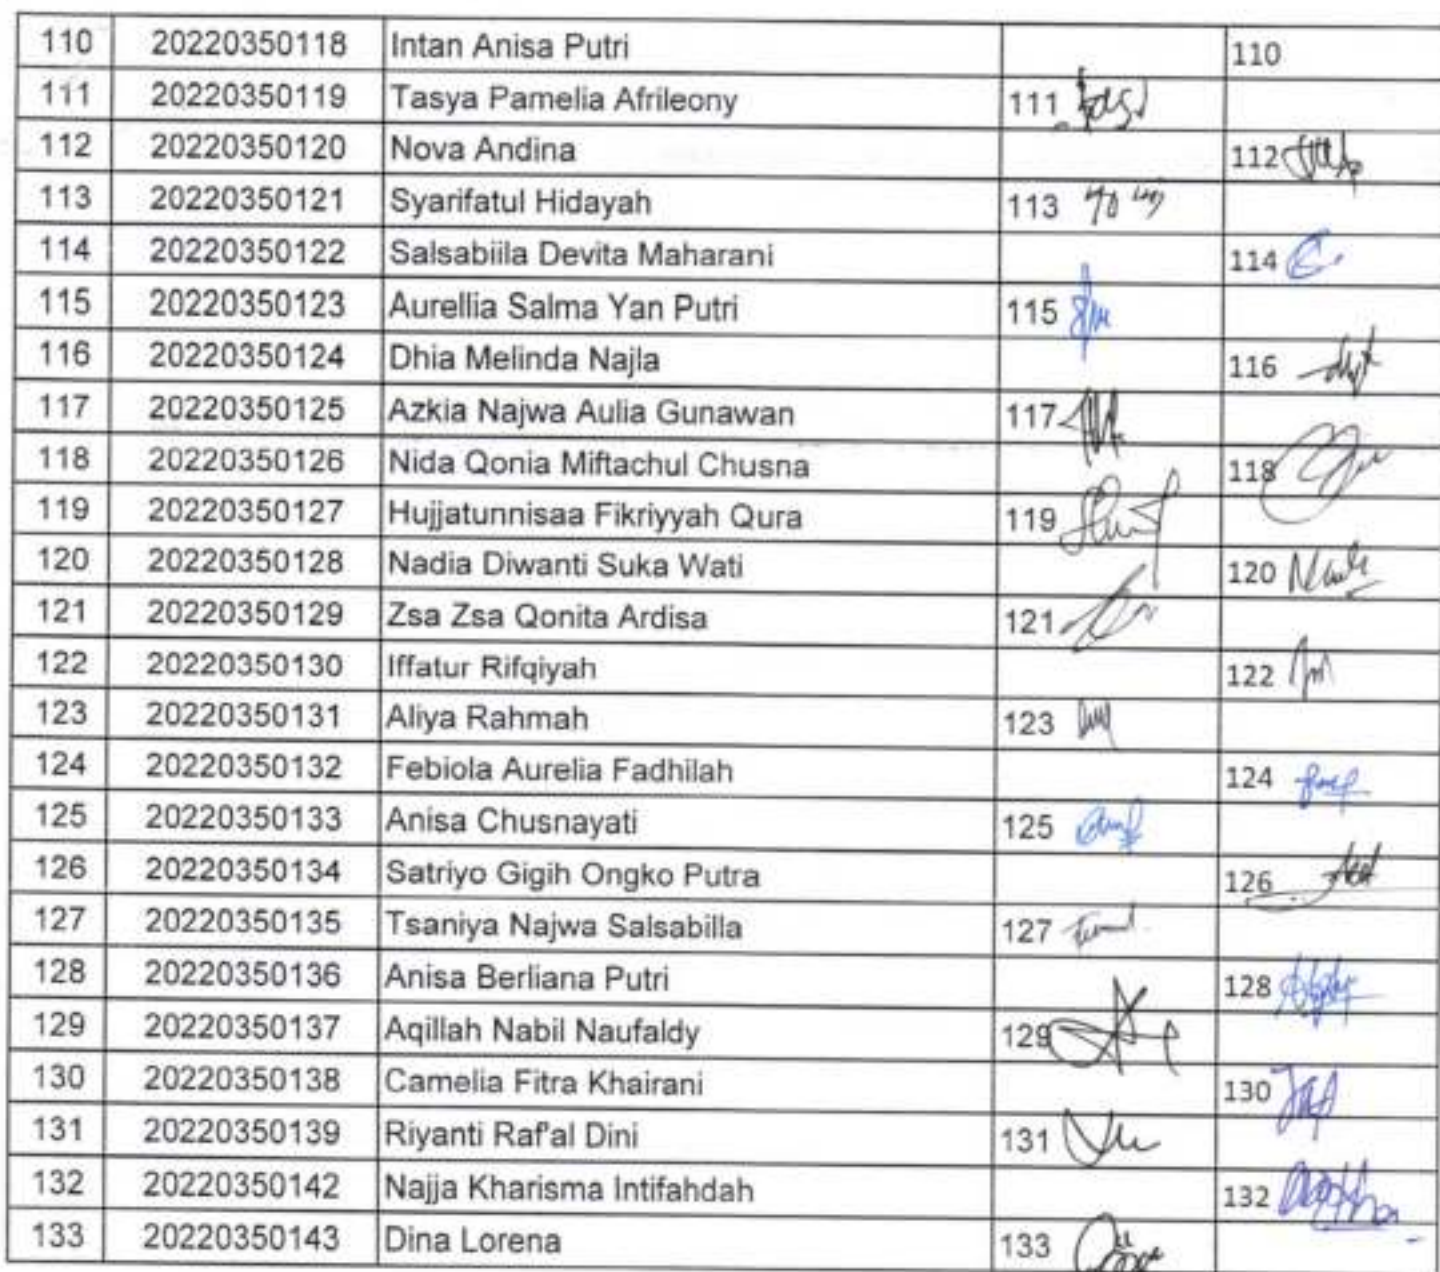 110 20220350118 Intan Anisa Putri 110
111 20220350119 Tasya Pamelia Afrileony 111
112 20220350120 Nova Andina 112
113 20220350121 Syarifatul Hidayah 113
114 20220350122 Salsabiila Devita Maharani 114
115 20220350123 Aurellia Salma Yan Putri 115
116 20220350124 Dhia Melinda Najla 116
117 20220350125 Azkia Najwa Aulia Gunawan 117
118 20220350126 Nida Qonia Miftachul Chusna 118
119 20220350127 Hujjatunnisaa Fikriyyah Qura 119
120 20220350128 Nadia Diwanti Suka Wati 120
121 20220350129 Zsa Zsa Qonita Ardisa 121
122 20220350130 Iffatur Rifqiyah 122
123 20220350131 Aliya Rahmah 123
124 20220350132 Febiola Aurelia Fadhilah 124
125 20220350133 Anisa Chusnayati 125
126 20220350134 Satriyo Gigih Ongko Putra 126
127 20220350135 Tsaniya Najwa Salsabilla 127
128 20220350136 Anisa Berliana Putri 128
129 20220350137 Aqillah Nabil Naufaldy 129
130 20220350138 Camelia Fitra Khairani 130
131 20220350139 Riyanti Raf'al Dini 131
132 20220350142 Najja Kharisma Intifahdah 132
133 20220350143 Dina Lorena 133